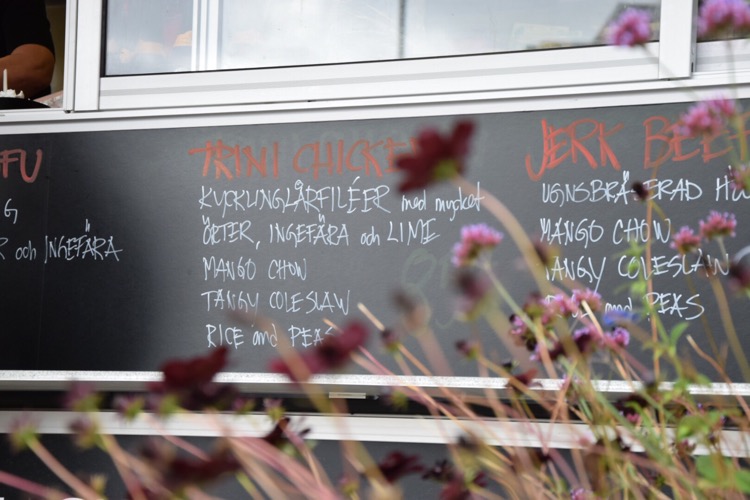 FU
G
och INGEFÄRA
TRINI CHICKEN
KYCKLINGLÅRFILÉER med mycket
ÖRTER, INGEFÄRA och LIME
MANGO CHOW
TANGY COLESLAW
RICE and PEAS
JERK BEE
UGNSBRÄSERAD
MANGO CHOW
TANGY COLESLAW
and PEAS